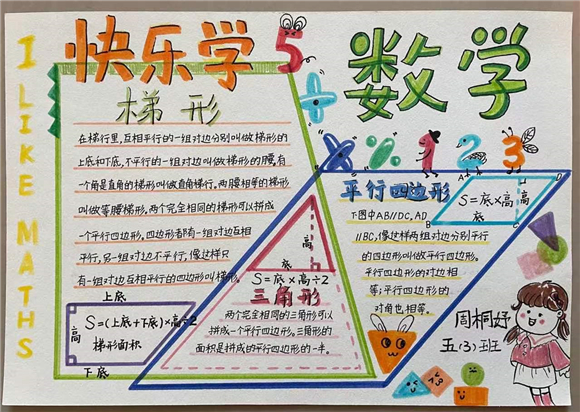 I LIKE MATHS
快乐学5
数学
梯形
在梯行里,互相平行的一组对边分别叫做梯形的
上底和下底,不平行的一组对边叫做梯形的腰,有
一个角是直角的梯形叫做直角梯行,两腰相等的梯形
叫做等腰梯形,两个完全相同的梯形可以拼成
一个平行四边形,四边形者都有一组对边互相
平行,另一组对边不平行;像这样只
有一组对边互相平行的四边形叫梯形.
上底
S=(上底+下底)×高÷2
高
梯形面积
下底
高
底
S=底×高÷2
三角形
两个完全相同的三角形可以
拼成一个平行四边形。三角形的
面积是拼成的平行四边形的一半。
123
平行四边形
A
D
S=底×高
高
底
B
下图中AB//DC,AD
//BC,像这样两组对边分别平行
的四边形叫做平行四边形。
平行四边形的对边相
等;平行四边形的
对角也相等。
周桐妤
五(3)班